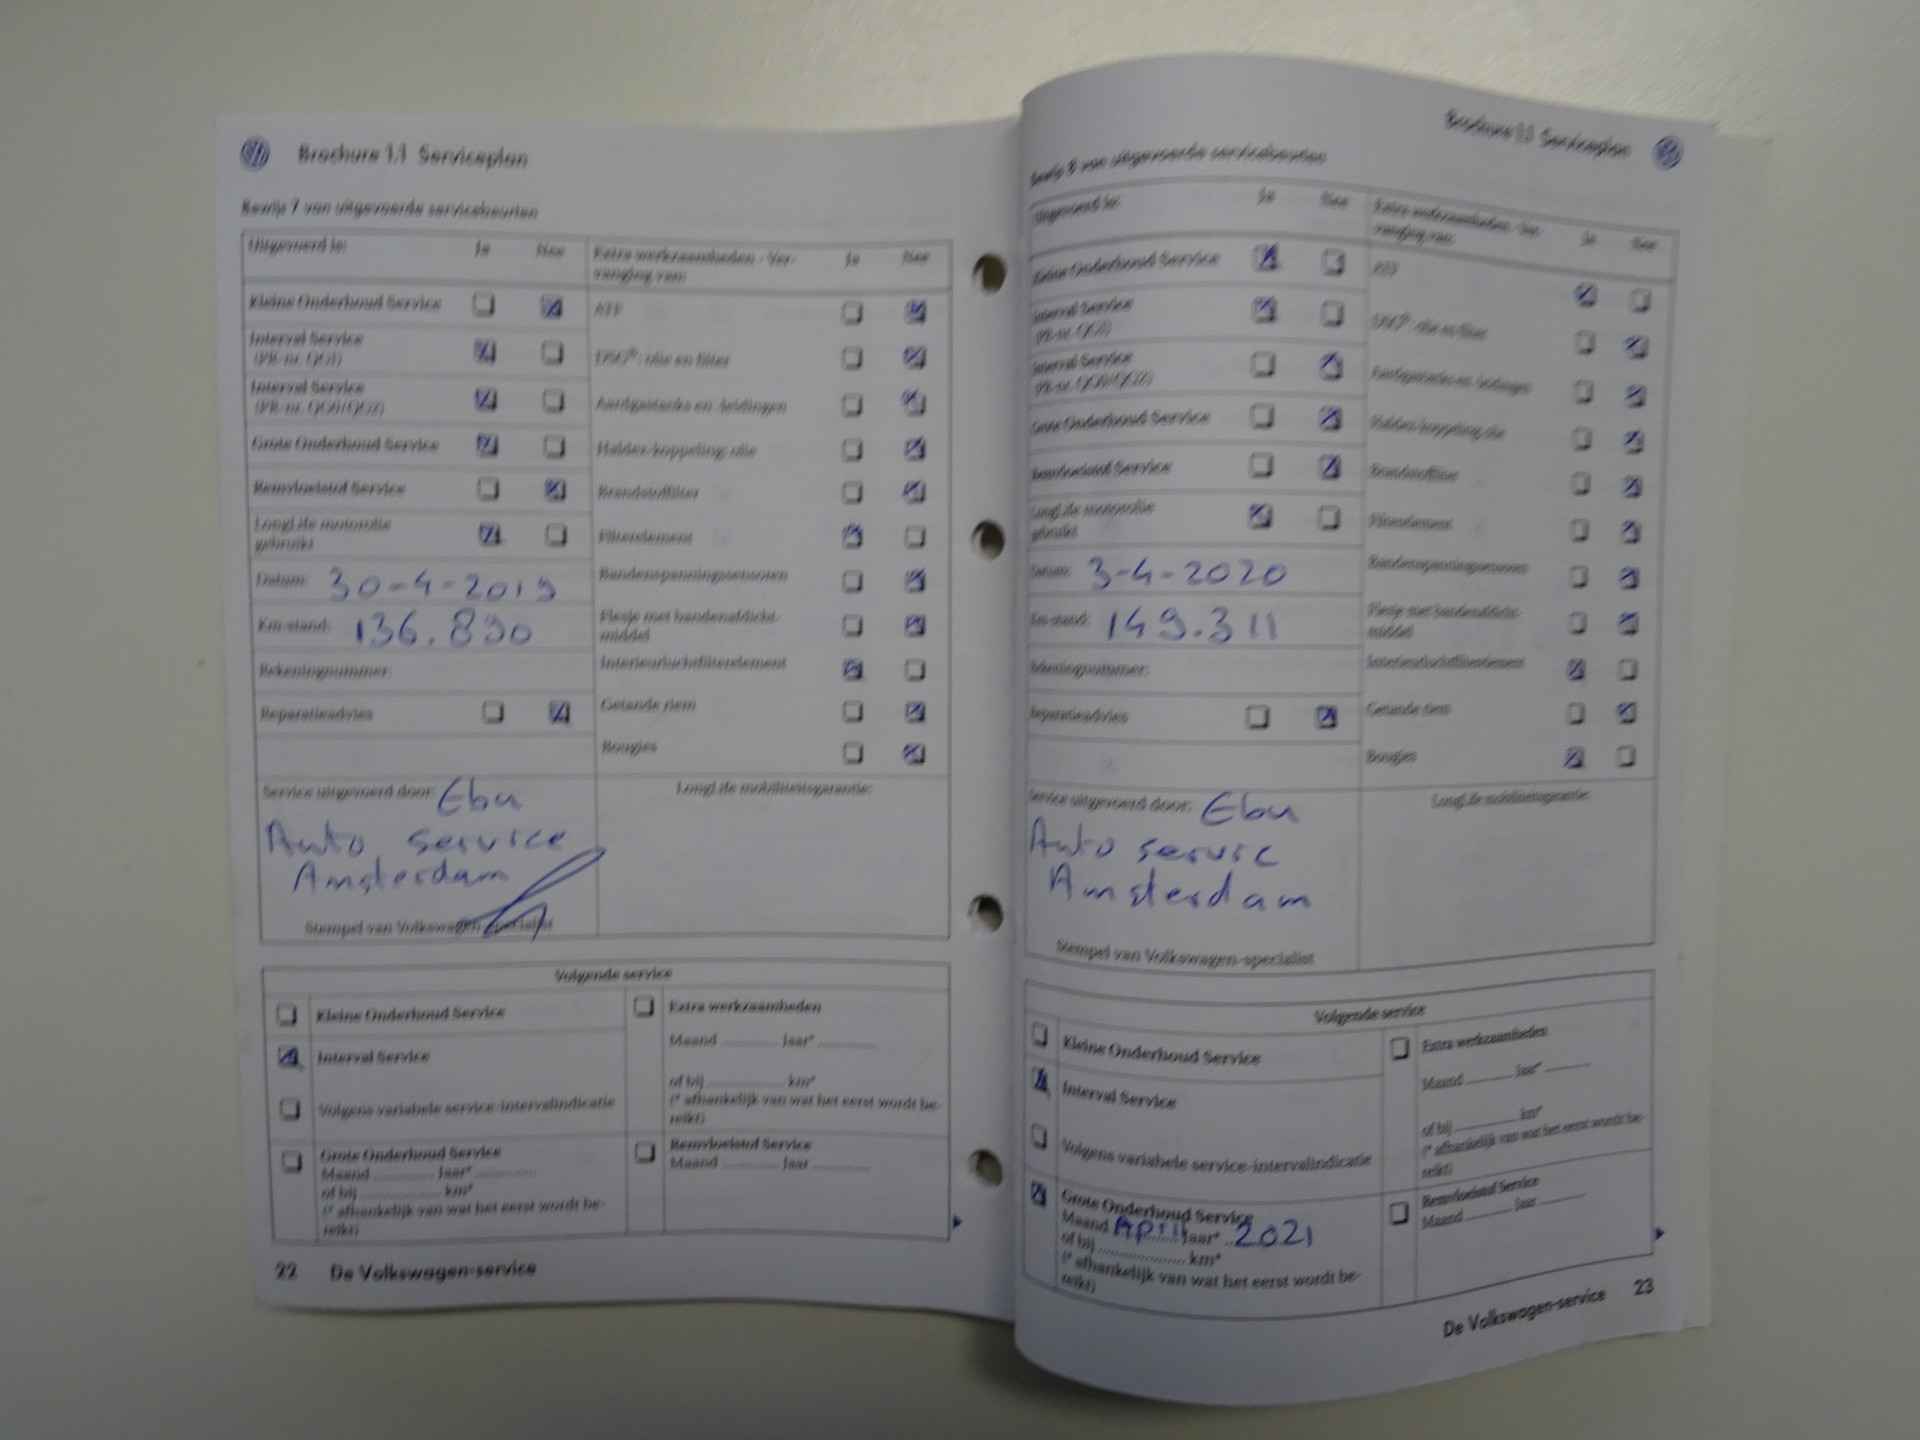 Brochure 1.1 Serviceplan
Bewijs 7 van uitgevoerde servicebeurten
Uitgevoerd is: Ja Nee
Extra werkzaamheden - Ver-
vanging van: Ja Nee
Kleine Onderhoud Service
Interval Service
(PR-nr. QG1)
Interval Service
(PR-nr. QG0/QG2)
Grote Onderhoud Service
Remvloeistof Service
LongLife motorolie
gebruikt
Datum: 30-4-2019
Km-stand: 136.890
Rekeningnummer:
Reparatieadvies
ATF
DSG®: olie en filter
Aardgastanks en -leidingen
Haldex-koppeling: olie
Brandstoffilter
Filterelement
Bandenspanningssensoren
Flesje met bandenafdicht-
middel
Interieurluchtfilterelement
Getande riem
Bougies
Service uitgevoerd door: Ebu
Auto service
Amsterdam
Stempel van Volkswagen-specialist
LongLife mobiliteitsgarantie:
Volgende service
Kleine Onderhoud Service
Interval Service
Volgens variabele service-intervalindicatie
Grote Onderhoud Service
Maand ............ Jaar* ............
of bij ................ km*
(* afhankelijk van wat het eerst wordt be-
reikt)
Extra werkzaamheden
Maand ............ Jaar* ............
of bij ................ km*
(* afhankelijk van wat het eerst wordt be-
reikt)
Remvloeistof Service
Maand ............ Jaar ............
22 De Volkswagen-service
Brochure 1.1 Serviceplan
Bewijs 8 van uitgevoerde servicebeurten
Uitgevoerd is: Ja Nee
Extra werkzaamheden - Ver-
vanging van: Ja Nee
Kleine Onderhoud Service
Interval Service
(PR-nr. QG1)
Interval Service
(PR-nr. QG0/QG2)
Grote Onderhoud Service
Remvloeistof Service
LongLife motorolie
gebruikt
Datum: 3-4-2020
Km-stand: 149.311
Rekeningnummer:
Reparatieadvies
ATF
DSG®: olie en filter
Aardgastanks en -leidingen
Haldex-koppeling: olie
Brandstoffilter
Filterelement
Bandenspanningssensoren
Flesje met bandenafdicht-
middel
Interieurluchtfilterelement
Getande riem
Bougies
Service uitgevoerd door: Ebu
Auto servic
Amsterdam
Stempel van Volkswagen-specialist
LongLife mobiliteitsgarantie:
Volgende service
Kleine Onderhoud Service
Interval Service
Volgens variabele service-intervalindicatie
Grote Onderhoud Service
Maand April Jaar* 2021
of bij ................ km*
(* afhankelijk van wat het eerst wordt be-
reikt)
Extra werkzaamheden
Maand ............ Jaar* ............
of bij ................ km*
(* afhankelijk van wat het eerst wordt be-
reikt)
Remvloeistof Service
Maand ............ Jaar ............
De Volkswagen-service 23